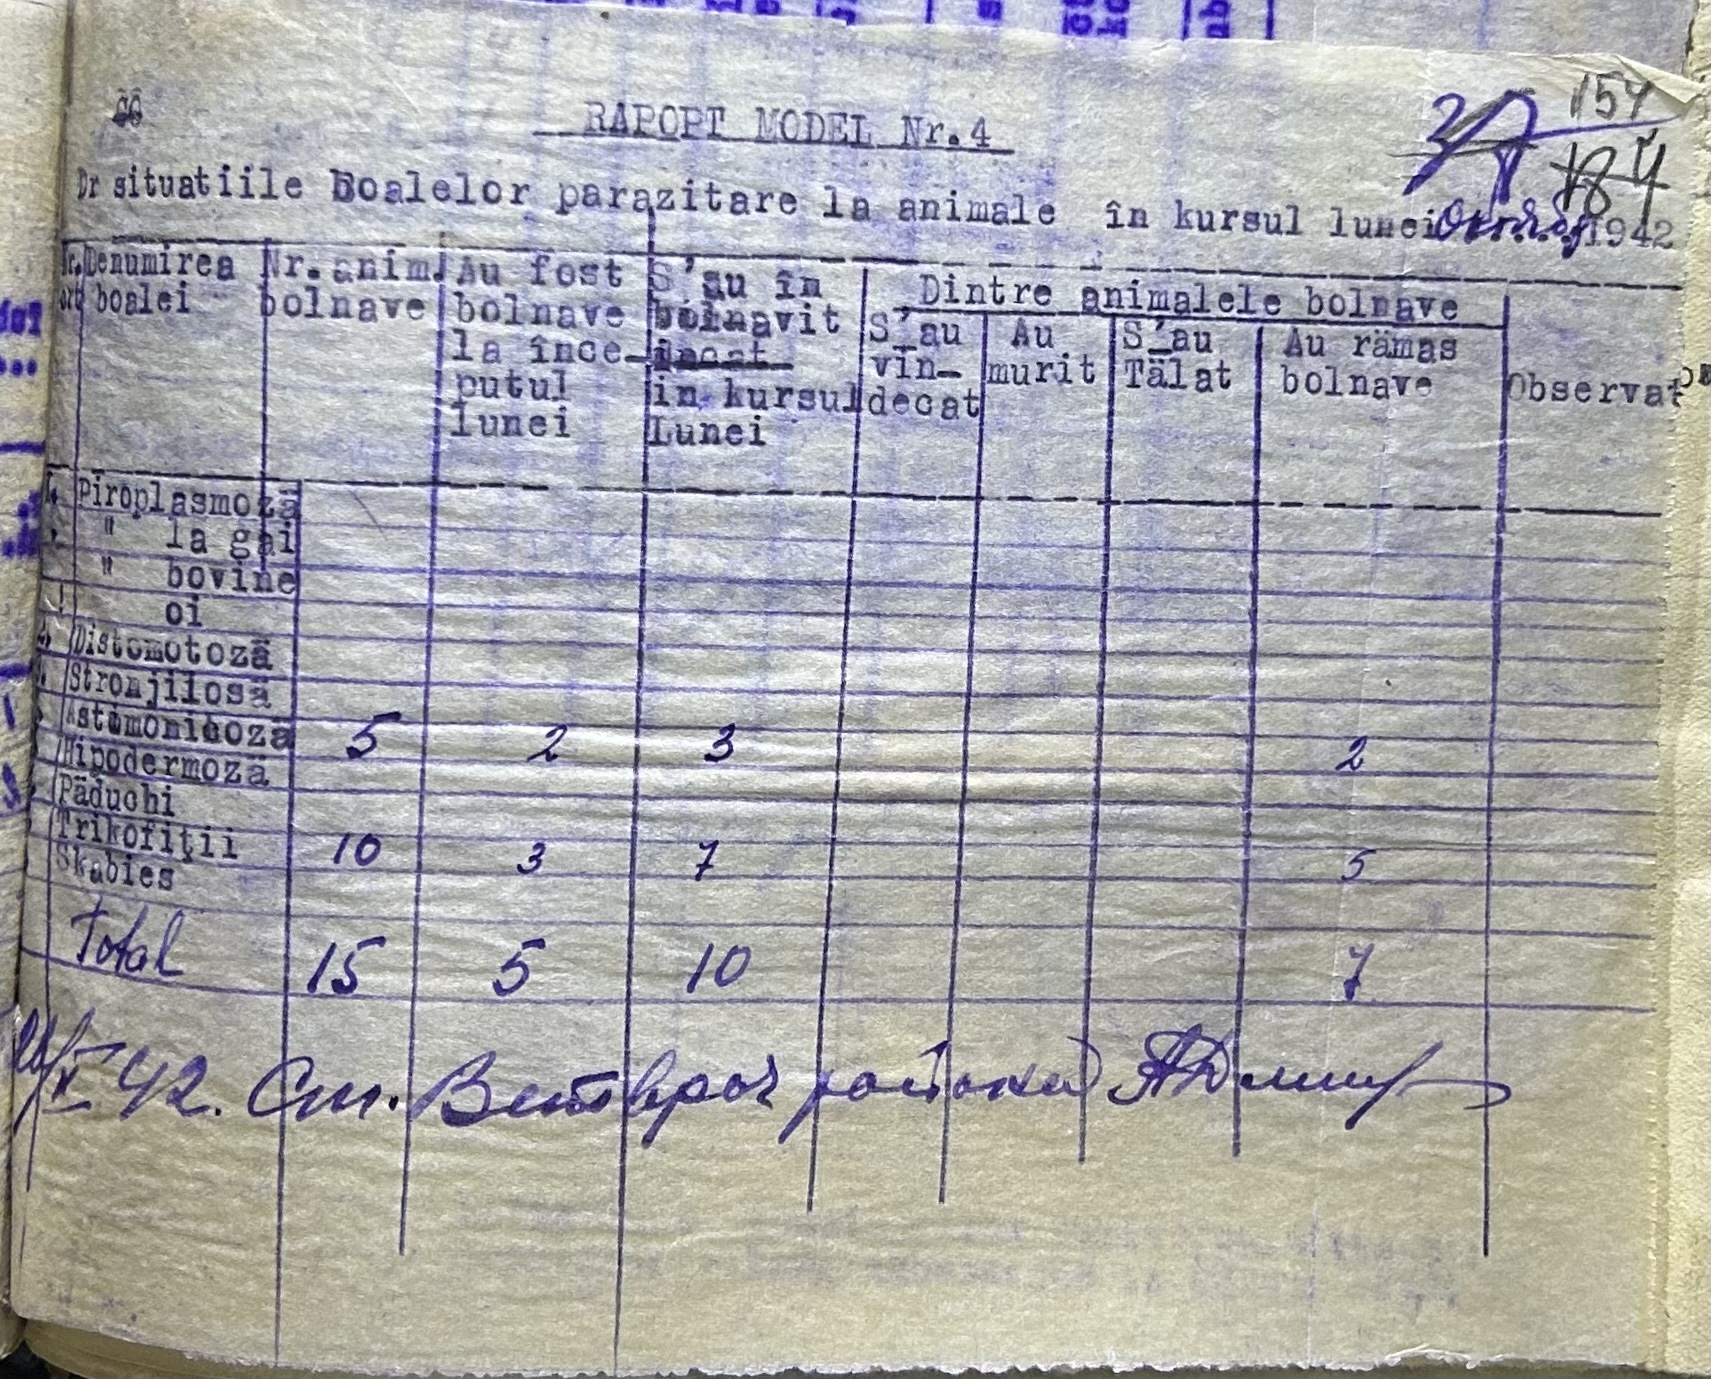 RAPOPT MODEL Nr.4
154
184
Dr situatiile Boalelor parazitare la animale în kursul lunei 1942
Nr. ort
Denumirea boalei
Nr. anim. bolnave
Au fost bolnave la înce-putul lunei
S'au în bolnavit incat in kursul Lunei
Dintre animalele bolnave
S'au vin-decat
Au murit
S'au Tälat
Au rämas bolnave
Observat
1. Piroplasmozä
" la gai
" bovine
oi
2. Distomotozä
Stronjilosä
Astomonicoza 5 2 3 2
Hipodermozä
Päduchi
Trikofiţii 10 3 7 5
Skabies
Total 15 5 10 7
42. Ст. Ветврач района